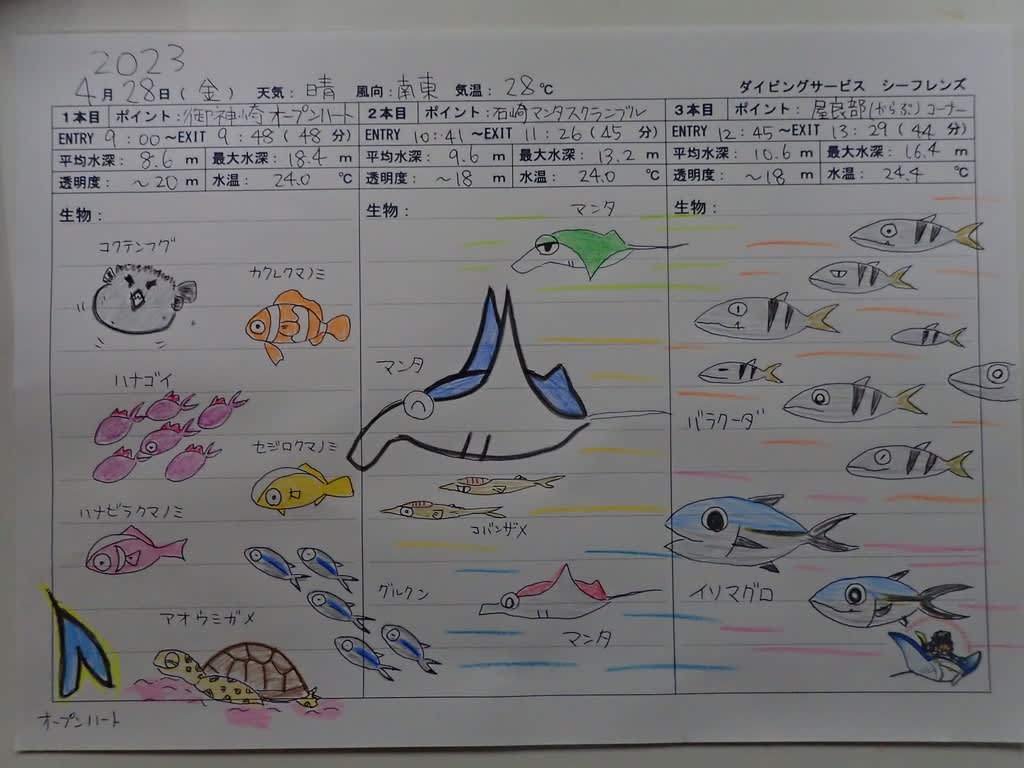 2023
4月28日(金) 天気:晴 風向:南東 気温:28℃ ダイビングサービス シーフレンズ
1本目 ポイント:御神崎オープンハート
ENTRY 9:00~EXIT 9:48(48分)
平均水深:8.6m 最大水深:18.4m
透明度:~20m 水温:24.0℃
生物:
コクテンフグ
カクレクマノミ
ハナゴイ
セジロクマノミ
ハナビラクマノミ
アオウミガメ
オープンハート
2本目 ポイント:石崎マンタスクランブル
ENTRY 10:41~EXIT 11:26(45分)
平均水深:9.6m 最大水深:13.2m
透明度:~18m 水温:24.0℃
生物:
マンタ
マンタ
コバンザメ
グルクン
マンタ
3本目 ポイント:屋良部(からぶ)コーナー
ENTRY 12:45~EXIT 13:29(44分)
平均水深:10.6m 最大水深:16.4m
透明度:~18m 水温:24.4℃
生物:
バラクーダ
イソマグロ